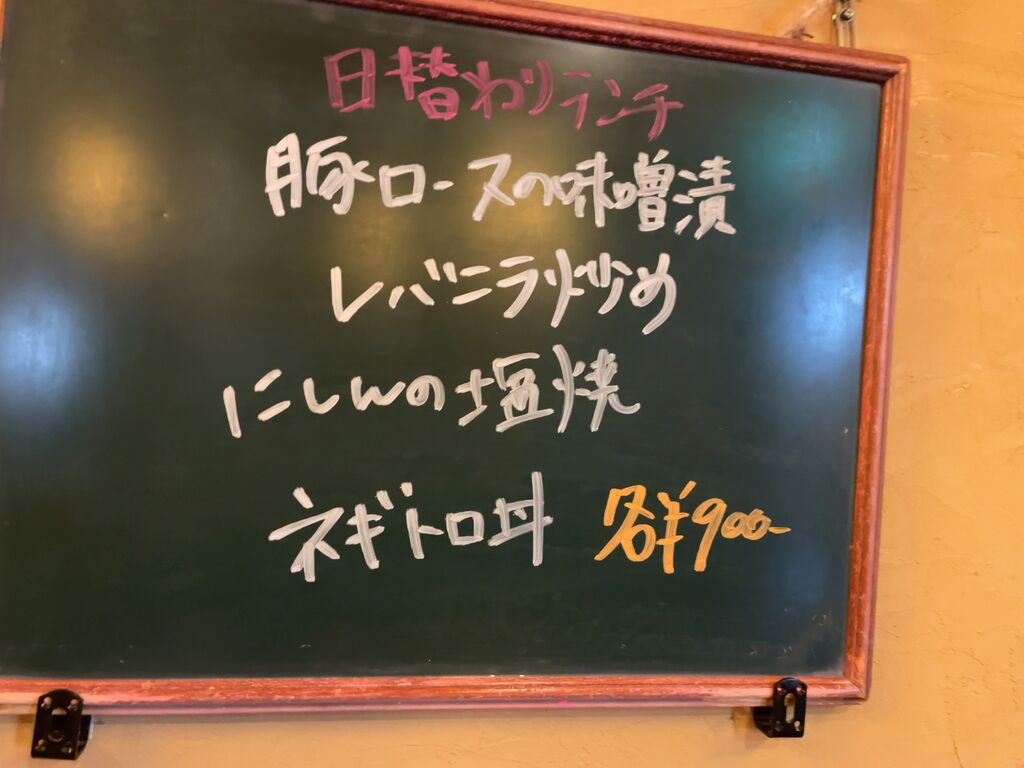 日替わりランチ
豚ロースの味噌漬
レバニラ炒め
にしんの塩焼
ネギトロ丼 各¥900-